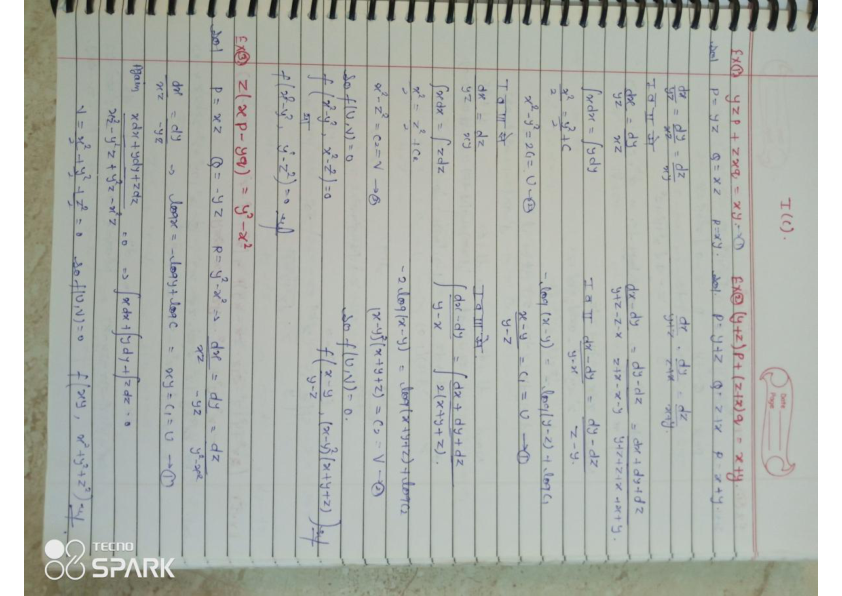 I(C).
Date
Page
Ex① yzp + zxq = xy —①
Sol P = yz Q = xz R = xy.
dx/yz = dy/xz = dz/xy
I व II से
dx/yz = dy/xz
∫xdx = ∫ydy
x²/2 = y²/2 + C
x² - y² = 2C₁ = U —②
I व III से
dx/yz = dz/xy
∫xdx = ∫zdz
x² = z² + C₂
x² - z² = C₂ = V —③
So f(U,V) = 0
f(x²-y², x²-z²) = 0
or
f(x²-y², y²-z²) = 0 Ans
Ex② (y+z)p + (z+x)q = x+y
Sol P = y+z Q = z+x R = x+y
dx/y+z = dy/z+x = dz/x+y
dx-dy/y+z-z-x = dy-dz/z+x-x-y = dx+dy+dz/y+z+z+x+x+y.
I व II dx-dy/y-x = dy-dz/z-y
-log(x-y) = -log(y-z) + log C₁
x-y/y-z = C₁ = U —①
I व III से
∫dx-dy/y-x = ∫dx+dy+dz/2(x+y+z).
-2log(x-y) = log(x+y+z) + log C₂
(x-y)²(x+y+z) = C₂ = V —②
So f(U,V) = 0.
f(x-y/y-z, (x-y)²(x+y+z)) Ans
Ex③ z(xp - yq) = y² - x²
Sol P = xz Q = -yz R = y²-x² ⇒ dx/xz = dy/-yz = dz/y²-x²
dx/xz = dy/-yz ⇒ log x = -log y + log C = xy = C₁ = U —①
Again xdx+ydy+zdz/x²z-y²z+y²z-x²z = 0 ⇒ ∫xdx+∫ydy+∫zdz = 0
V = x²+y²+z² = 0 So f(U,V) = 0 f(xy, x²+y²+z²) Ans
TECNO
SPARK